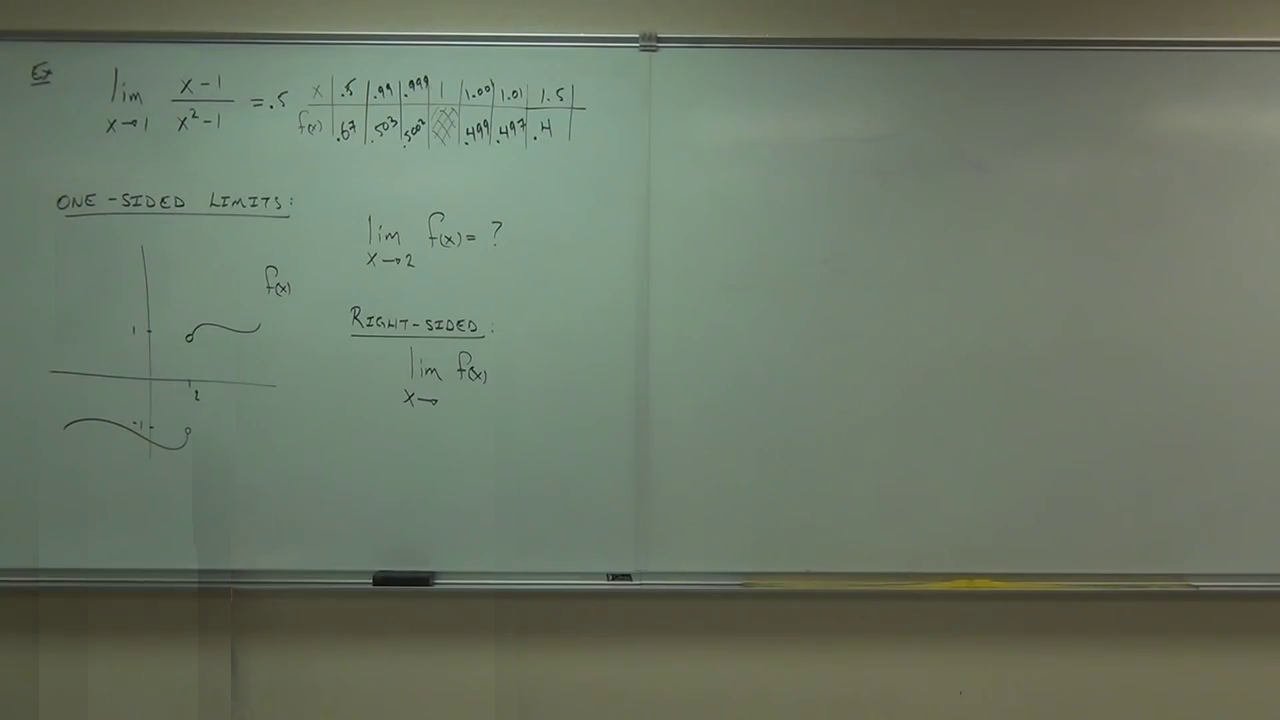 Ex
lim x→1 x-1 / x²-1 = .5
x | .5 | .99 | .999 | 1 | 1.001 | 1.01 | 1.5
f(x) | .67 | .503 | .5002 | | .499 | .497 | .4
ONE-SIDED LIMITS:
lim f(x) = ?
x→2
f(x)
1
2
-1
RIGHT-SIDED:
lim f(x)
x→